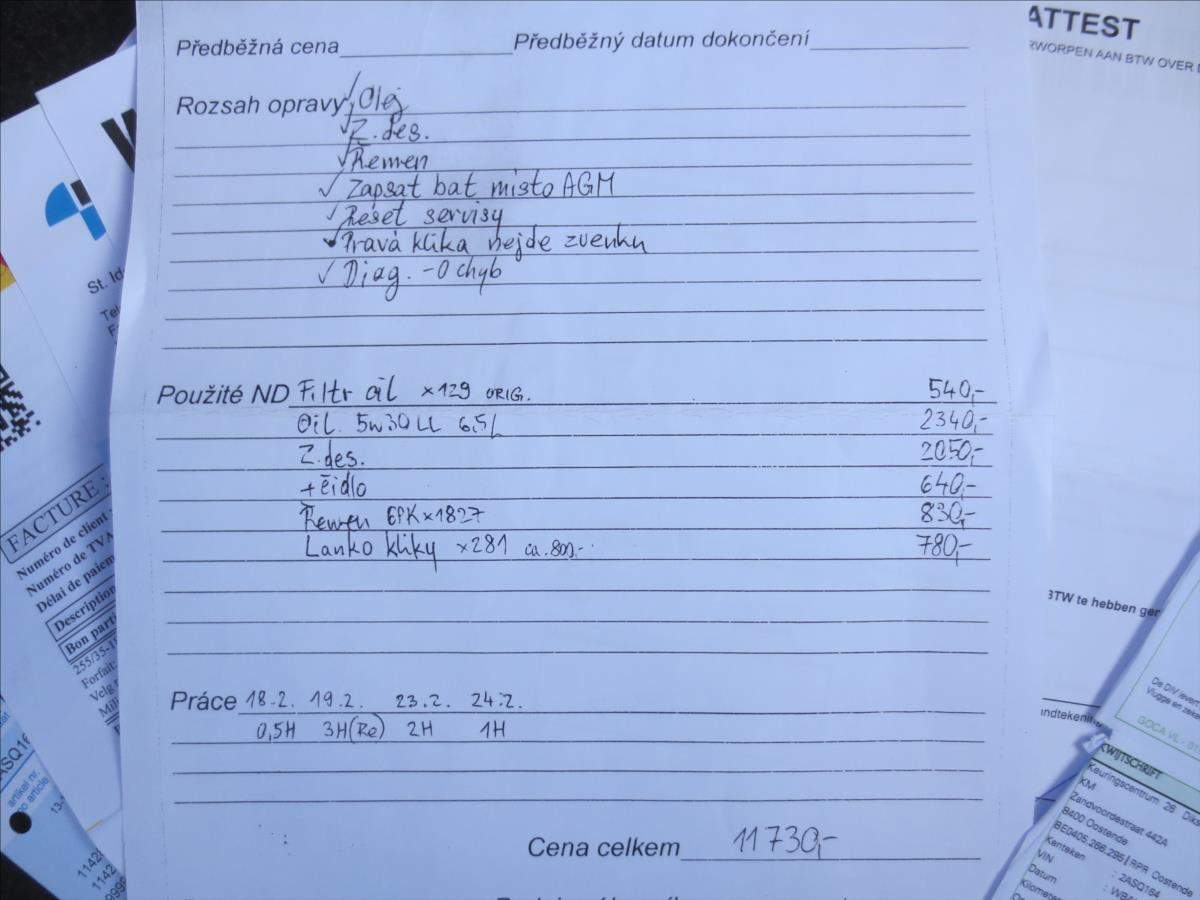 Předběžná cena Předběžný datum dokončení
Rozsah opravy Olej
Z.des.
Řemen
Zapsat bat misto AGM
Reset servisy
Pravá klika nejde zvenku
Diag. - 0 chyb
Použité ND Filtr oil ×129 ORIG. 540,-
Oil. 5W30 LL 6,5L 2340,-
Z.des. 2050,-
+čidlo 640,-
Řemen 6PK×1827 830,-
Lanko kliky ×281 ca.800,- 780,-
Práce 18.2. 19.2. 23.2. 24.2.
0,5H 3H(Re) 2H 1H
Cena celkem 11730,-
ATTEST
RWORPEN AAN BTW OVER
BTW te hebben
St.
FACTURE :
Numéro de client
Numéro de TVA
Délai de paiem
Description
Bon part
Forfait:
artikel nr.
no article
1142
1142
De DIV
GOCA VL
KWIJTSCHRIFT
Keuringscentrum 26
KM
Zandvoordestraat 442A
8400 Oostende
BE0405.266.295 | RPR Oostende
Kenteken : 2ASQ164
VIN
Datum